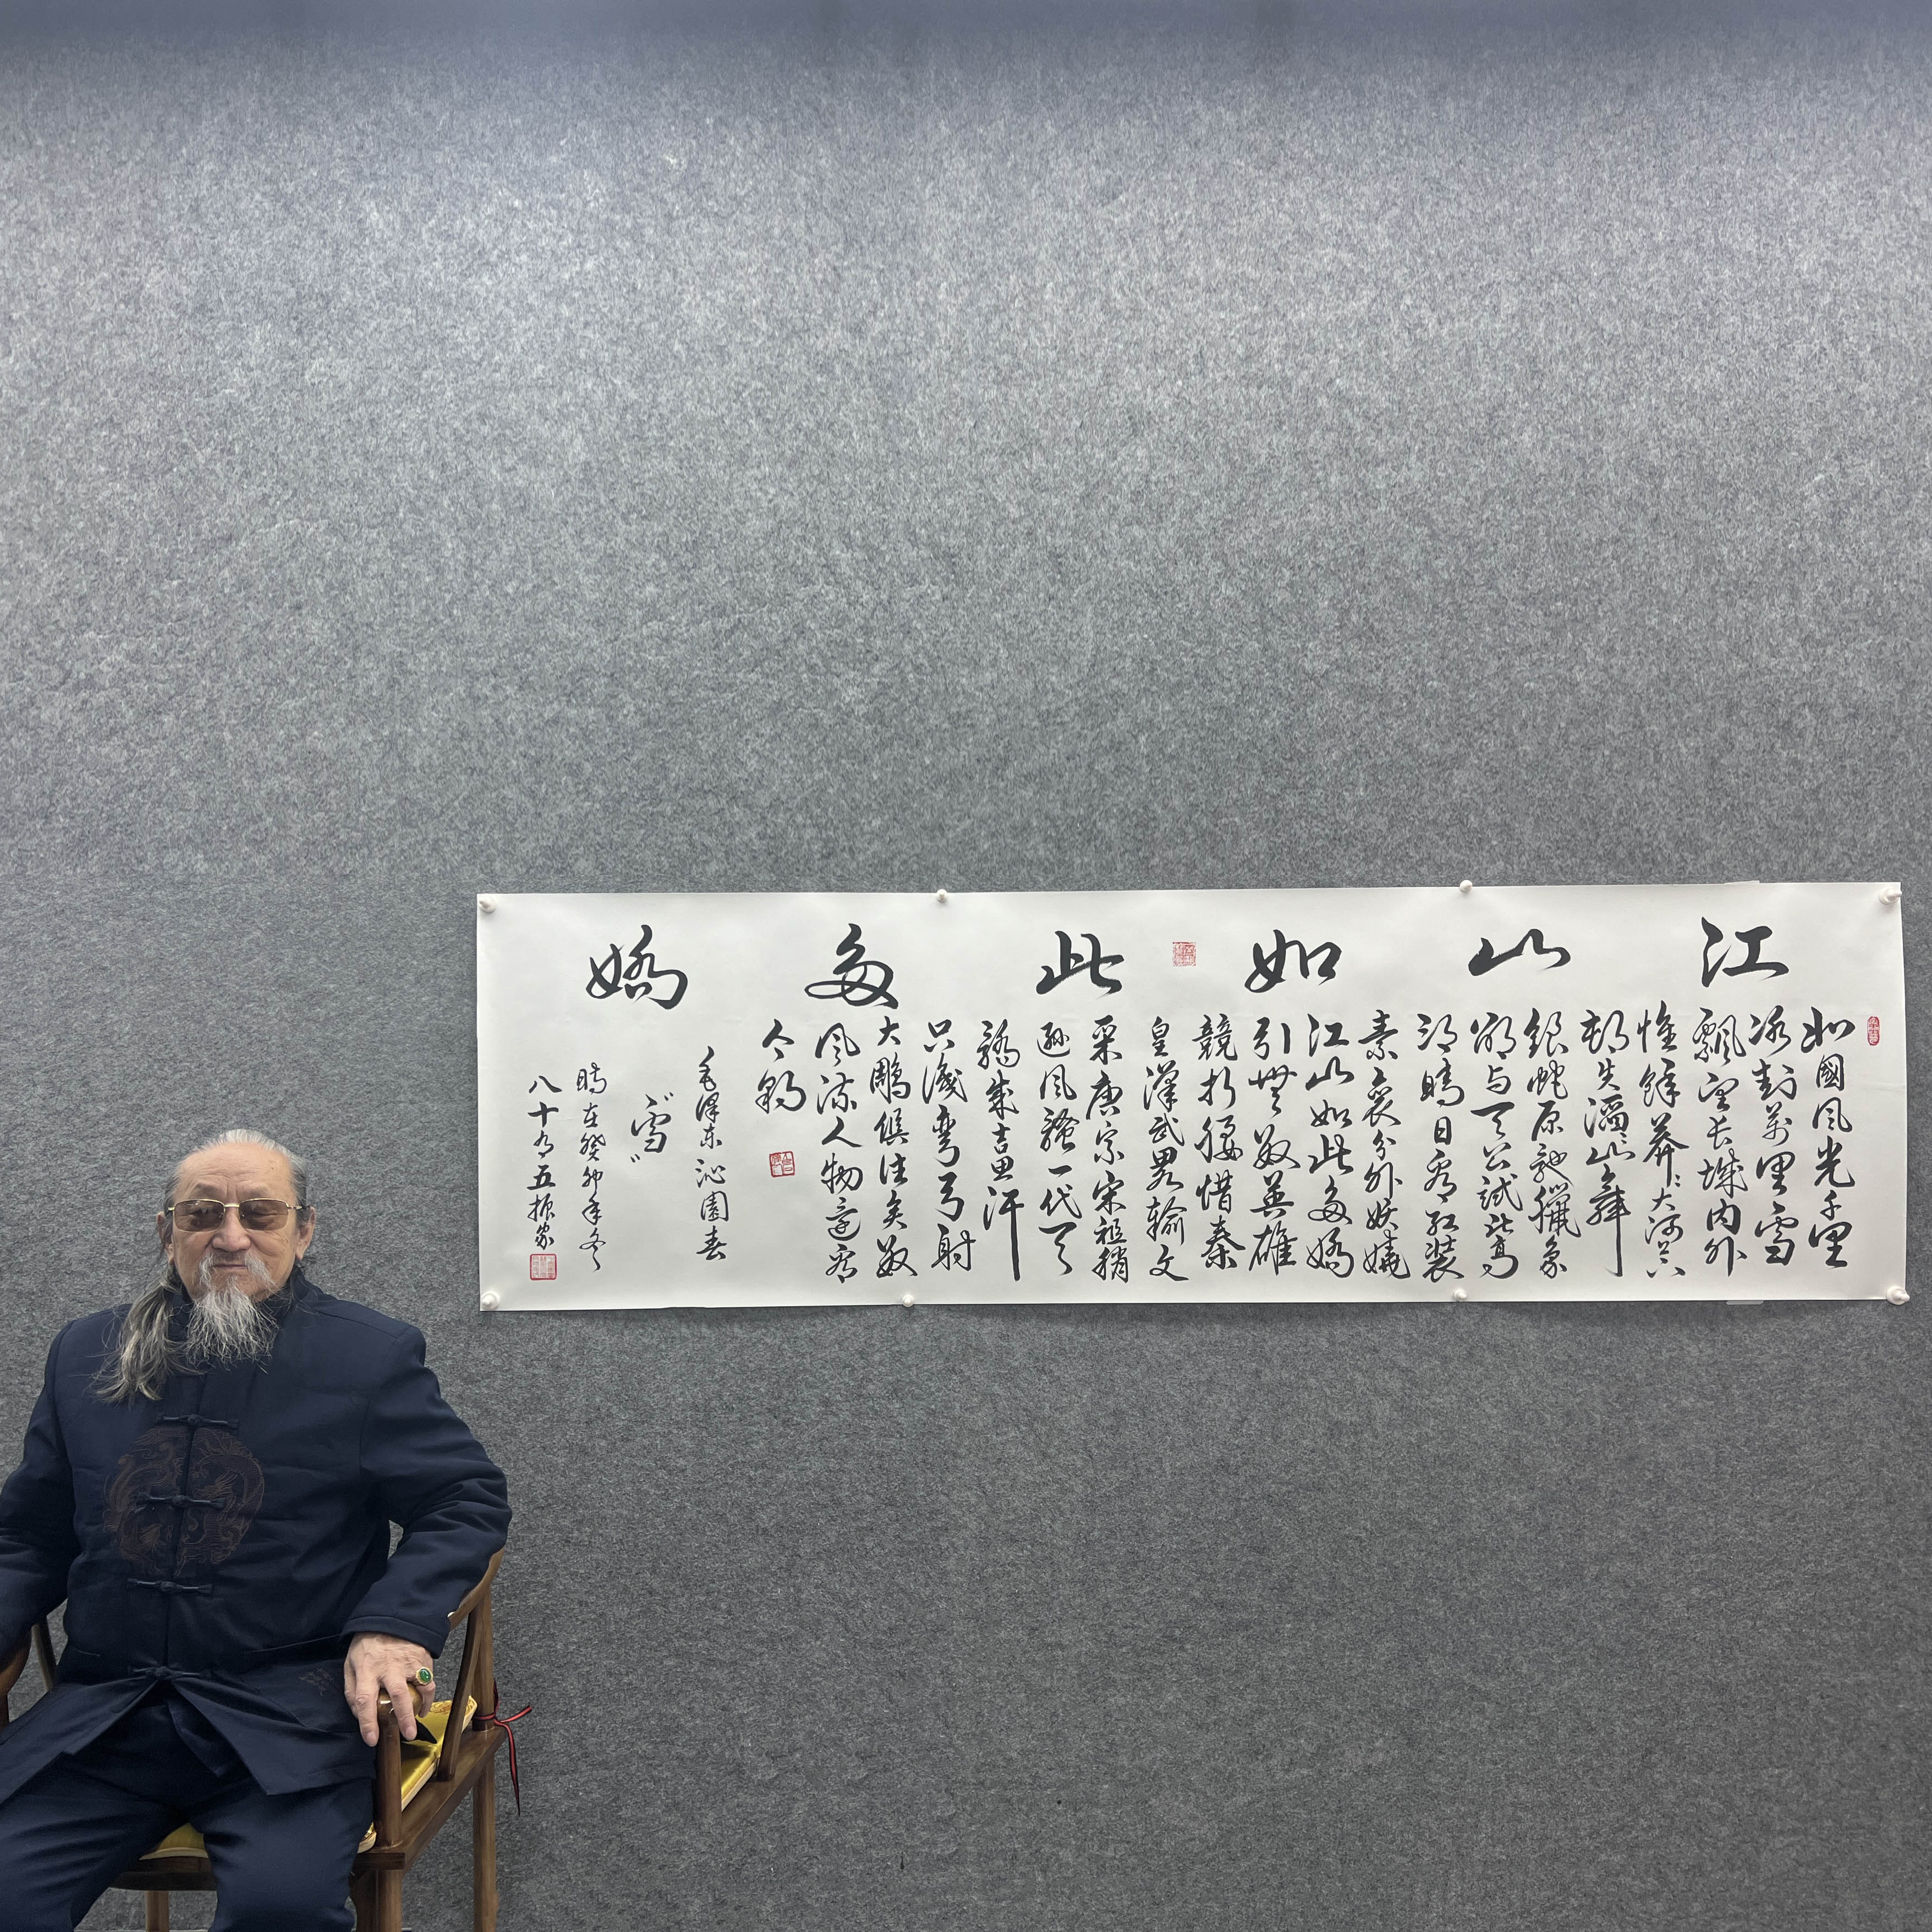 江山如此多嬌
北國風光千里
冰封萬里雪
飄望长城内外
惟餘莽〻大河上下
頓失滔〻山舞
銀蛇原馳臘象
欲与天公試比高
須晴日看红装
素裹分外妖嬈
江山如此多嬌
引無數英雄
競折腰惜秦
皇漢武畧輸文
采唐宗宋祖稍
遜風骚一代天
驕成吉思汗
只識彎弓射
大雕俱往矣數
風流人物還看
今朝
毛澤东沁園春
"雪"
時在癸卯年冬
八十九五振家